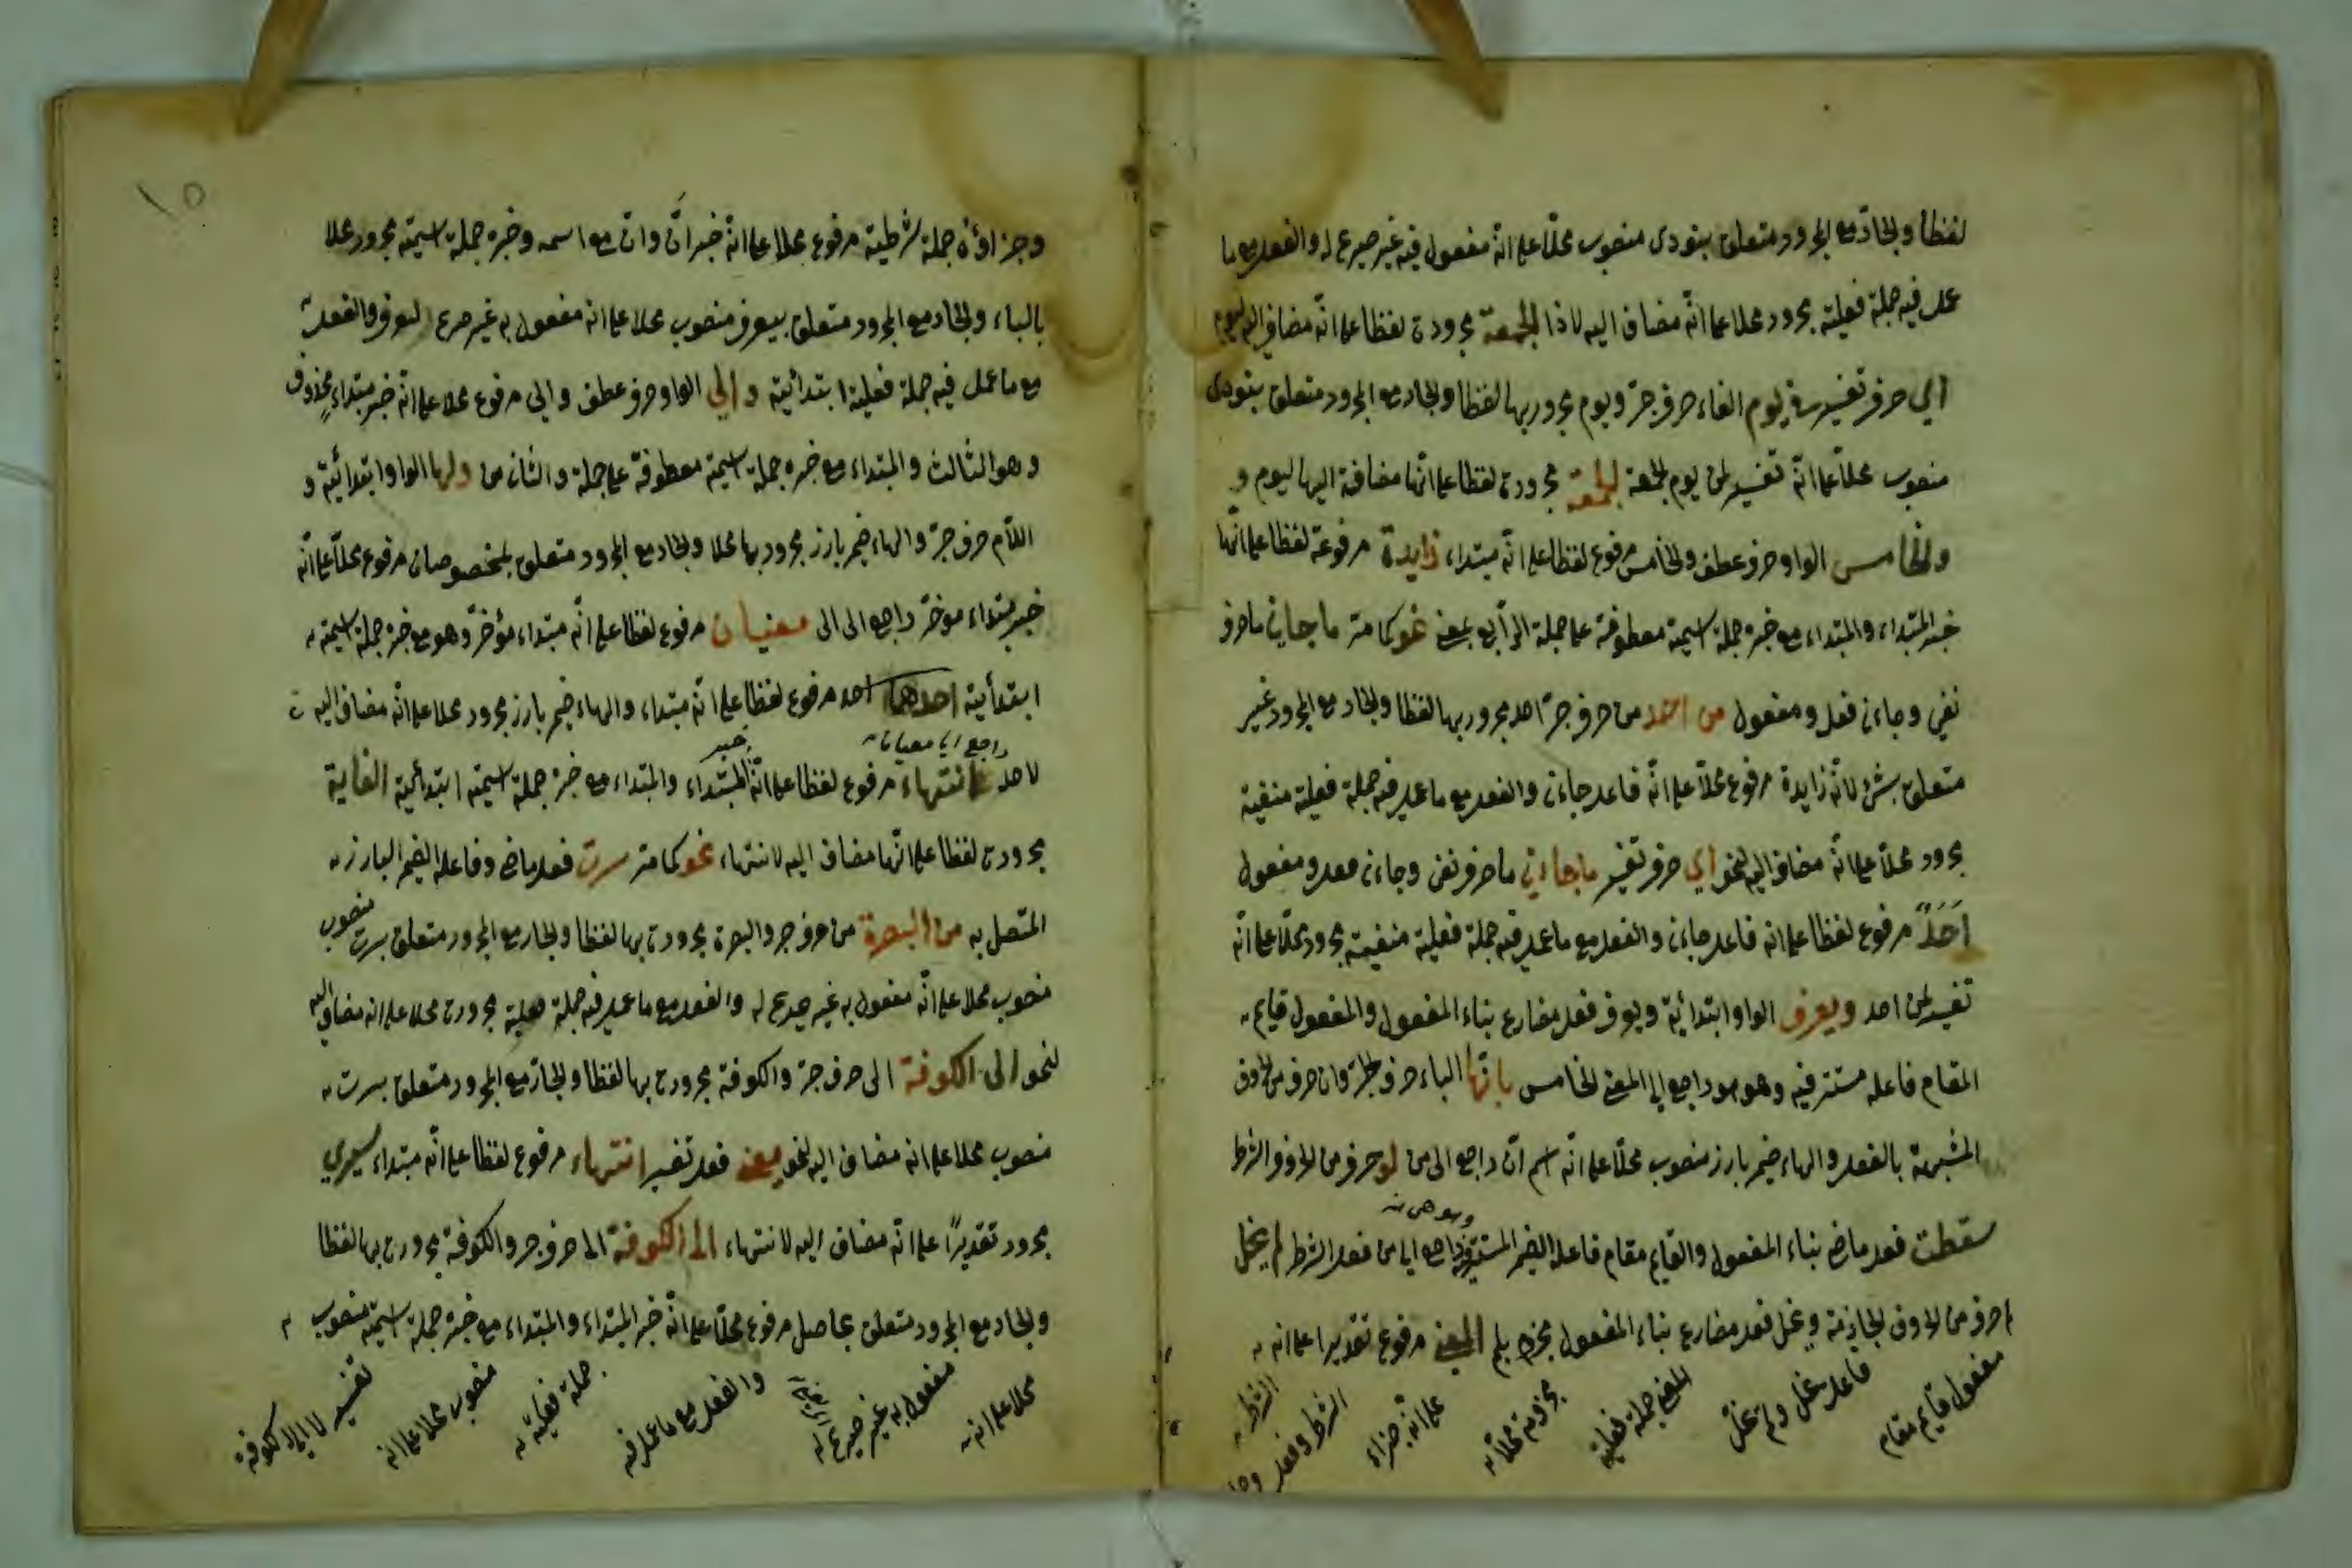 لفظا والجار مع المجرور متعلق بنودى منصوب محلا على انه مفعول فيه غير صريح له والفعل مع ما
عمل فيه جملة فعلية مجرور محلا على انه مضاف اليه لاذا الجمعة مجرورة لفظا على انه مضاف اليه ليوم
اي حرف تفسير في يوم الفاء حرف جر ويوم مجرور بها لفظا والجار مع المجرور متعلق بنودى
منصوب محلا على انه تفسير لمن يوم الجمعة الجمعة مجرورة لفظا على انها مضافة اليها ليوم و
والخامس الواو حرف عطف والخامس مرفوع لفظا على انه مبتداء زايدة مرفوعة لفظا على انها
خبر المبتداء والمبتداء مع خبره جملة اسمية معطوفة على جملة الرابع بمعنى نحو كما مر ما جاءني ما حرف
نفي وجاءن فعل ومفعول من احد من حرف جر احد مجرور بها لفظا والجار مع المجرور غير
متعلق بشئ لانه زايدة مرفوع محلا على انه فاعل جاءن والفعل مع ما عمل فيه جملة فعلية منفية
مجرور محلا على انه مضاف اليه لنحو اي حرف تفسير ما جاءني ما حرف نفى وجاءن فعل ومفعول
أَحَدٌ مرفوع لفظا على انه فاعل جاءن والفعل مع ما عمل فيه جملة فعلية منفية مجرور محلا على انه
تفسير لمن احد ويعرف الواو ابتدائية ويعرف فعل مضارع بناء المفعول والمفعول قايم
المقام فاعله مستتر فيه وهو هو راجع الى المعنى الخامس بانها الباء حرف جر وان حرف من الحروف
المشبهة بالفعل والهاء ضمير بارز منصوب محلا على انه اسم ان راجع الى من لو حرف من الحروف الشرط
سقطت فعل ماض بناء المفعول والقايم مقام فاعله الضمير المستتر فيه وهو هي راجع الى من فعل الشرط لم يخل
لم حرف من الحروف الجازمة ويخل فعل مضارع بناء المفعول مجزوم بلم المعنى مرفوع تقديرا على انه
مفعول قايم مقام
فاعل يخل ولم يخل
المعنى جملة فعلية
مجزومة محلا
على انه جزاء
الشرط
الشرط وفعل
وجزاؤه جملة شرطية مرفوع محلا على انه خبر ان وان مع اسمه وخبره جملة اسمية مجرور محلا
بالباء والجار مع المجرور متعلق بيعرف منصوب محلا على انه مفعول به غير صريح ليعرف والفعل
مع ما عمل فيه جملة فعلية ابتدائية والى الواو حرف عطف والى مرفوع محلا على انه خبر مبتداء محذوف
وهو الثالث والمبتداء مع خبره جملة اسمية معطوفة على جملة والثان من ولها الواو ابتدائية و
اللام حرف جر والهاء ضمير بارز مجرور بها محلا والجار مع المجرور متعلق بمخصوصان مرفوع محلا على انه
خبر مبتداء مؤخر راجع الى الى معنيان مرفوع لفظا على انه مبتداء مؤخر وهو مع خبره جملة اسمية
ابتدأية احدهما احد مرفوع لفظا على انه مبتداء والهاء ضمير بارز مجرور محلا على انه مضاف اليه
لاحد راجع الى معنيان انتهاء مرفوع لفظا على انه خبر المبتداء والمبتداء مع خبره جملة اسمية ابتدائية الغاية
مجرورة لفظا على انها مضاف اليه لانتهاء نحو كما مر سرت فعل ماض وفاعله الضمير البارز
المتصل به من البصرة من حرف جر والبصرة مجرورة بها لفظا والجار مع المجرور متعلق بسرت منصوب
منصوب محلا على انه مفعول به غير صريح له والفعل مع ما عمل فيه جملة فعلية مجرورة محلا على انه مضاف اليه
لنحو الى الكوفة الى حرف جر والكوفة مجرورة بها لفظا والجار مع المجرور متعلق بسرت
منصوب محلا على انه مضاف اليه لنحو بمعنى فعل تفسير انتهاء مرفوع لفظا على انه مبتداء سيري
مجرور تقديرًا على انه مضاف اليه لانتهاء الى الكوفة الى حرف جر والكوفة مجرورة بها لفظا
والجار مع المجرور متعلق بحاصل مرفوع محلا على انه خبر المبتداء والمبتداء مع خبره جملة اسمية منصوب
محلا على انه
مفعول به غير صريح له
والفعل مع ما عمل فيه
جملة فعلية
منصوب محلا على انه
تفسير لا الى الكوفة
١٥